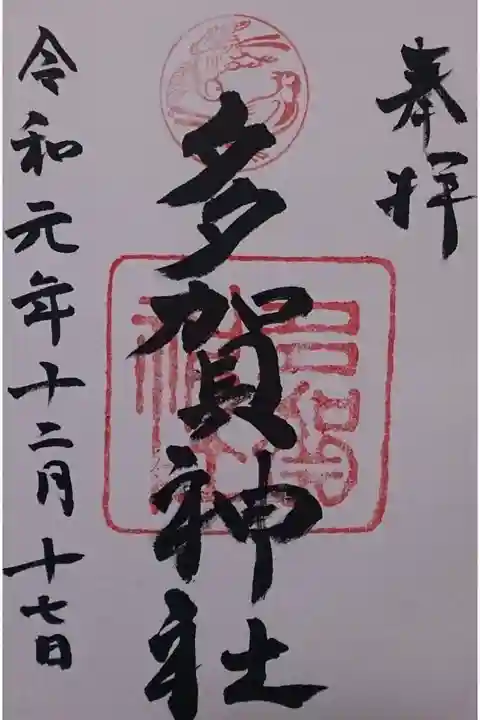 奉拝
多賀神社
令和元年十二月十七日